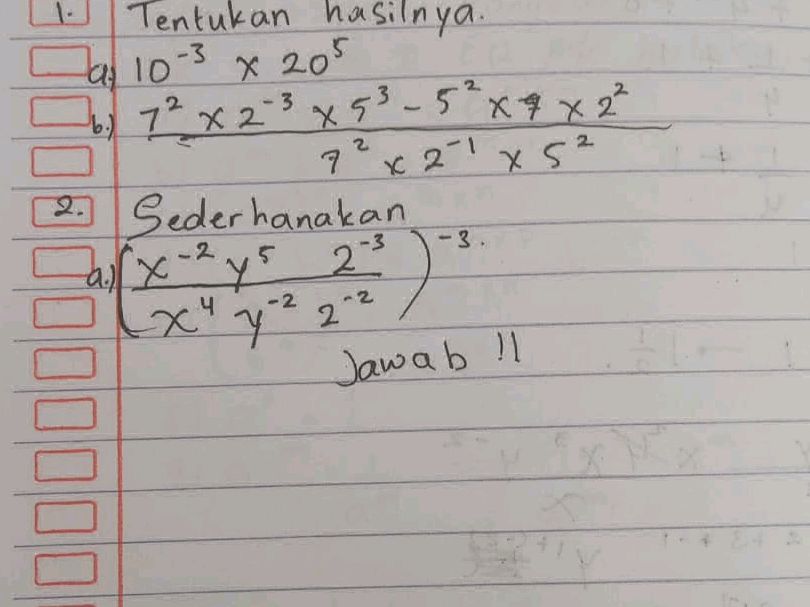 1. Tentukan hasilnya.
a) 10⁻³ × 20⁵
b.) 7² × 2⁻³ × 5³ - 5² × 7 × 2²
7² × 2⁻¹ × 5²
2. Sederhanakan
a.) (x⁻² y⁵ 2⁻³
x⁴ y⁻² 2⁻²)⁻³.
Jawab !!